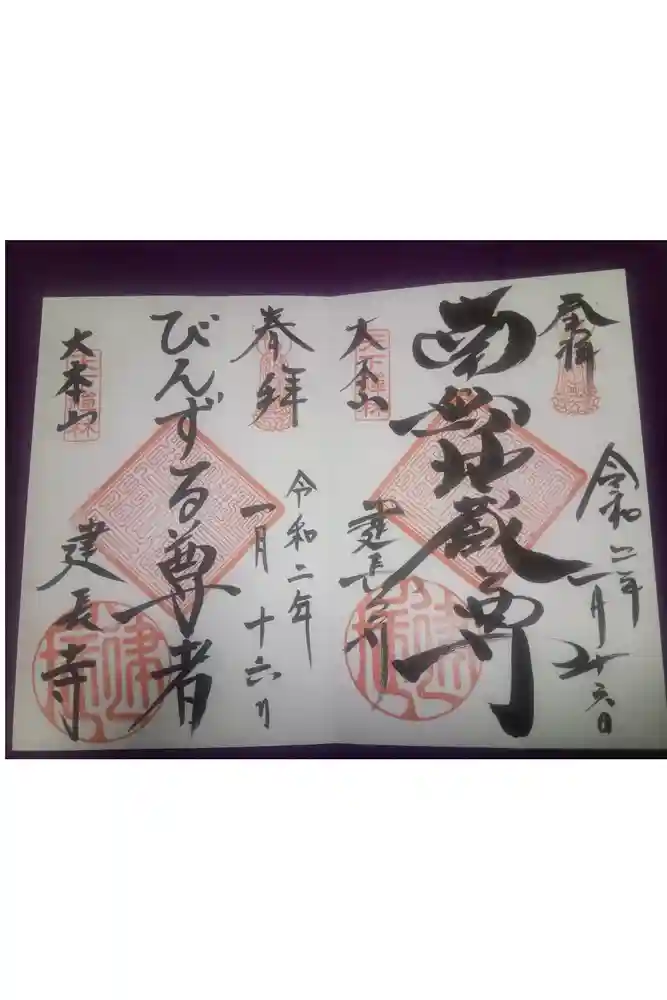 奉拝
令和二年一月
南無地蔵尊
大本山
天下禅林
建長寺
奉拝
令和二年
一月十六日
びんずる尊者
大本山
天下禅林
建長寺